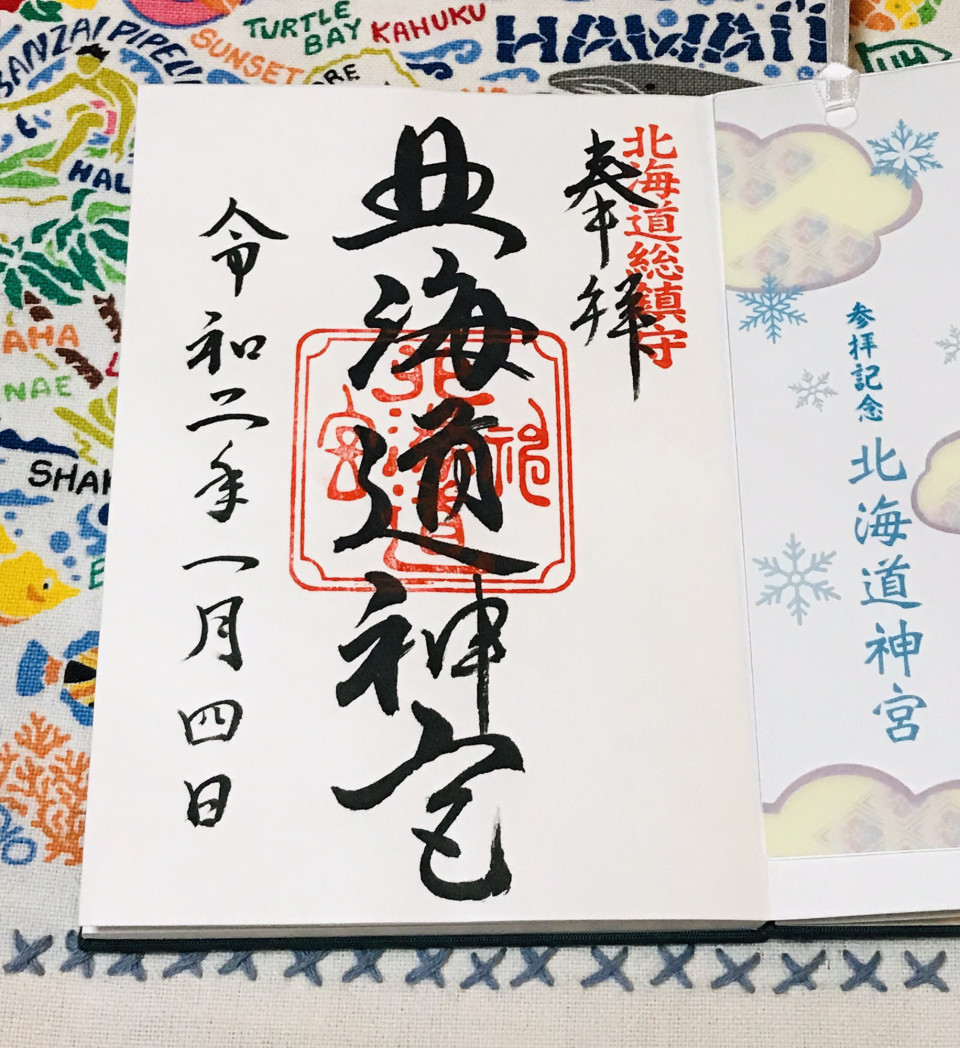 奉拝
北海道総鎮守
北海道神宮
令和二年一月四日
参拝記念
北海道神宮
BANZAI PIPELI
SUNSET
TURTLE
BAY
KAHUKU
HAWAII